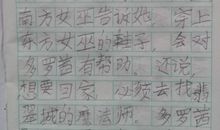 南方女巫告诉她，穿上
东方女巫的鞋子，会对
多罗茜有帮助。还说，
想要回家，必须去找翡
翠城的魔法师。多罗茜